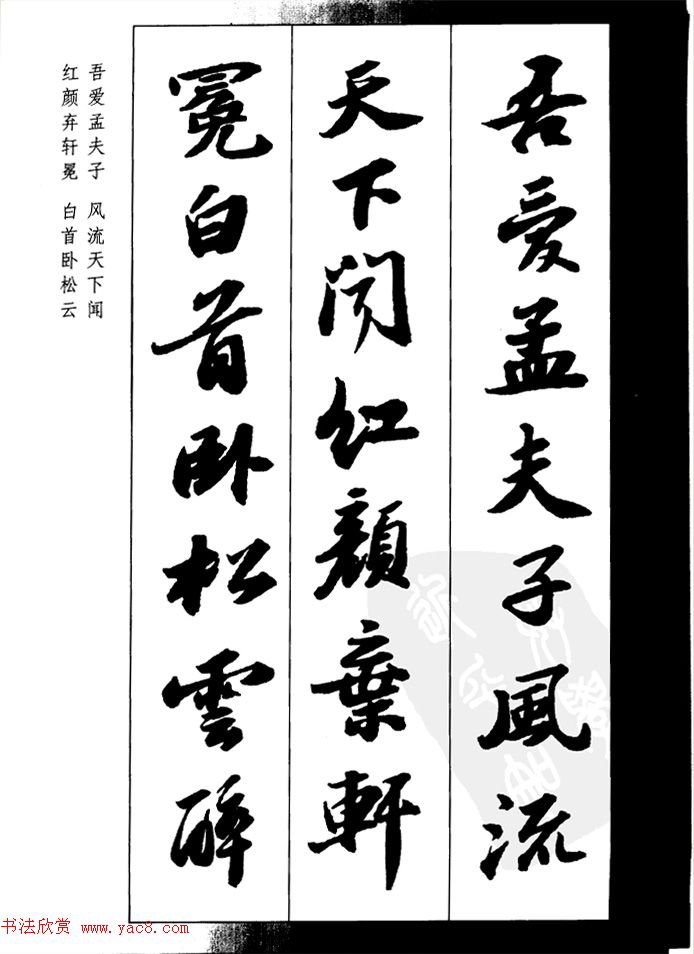 吾爱孟夫子风流
天下闻红颜弃轩
冕白首卧松云醉
吾爱孟夫子 风流天下闻
红颜弃轩冕 白首卧松云
书法欣赏 www.yac8.com